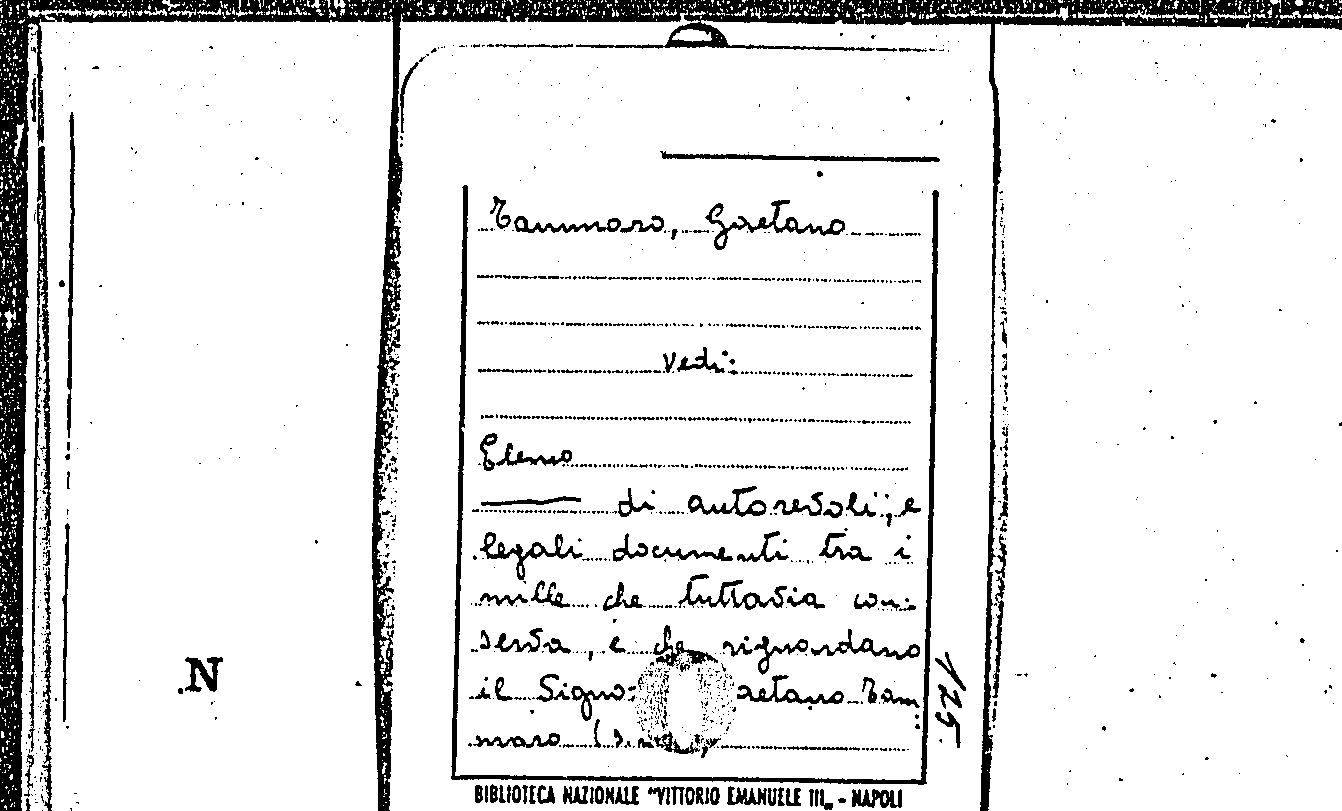 Tammaro, Gaetano
Vedi:
Elenco
di autorevoli, e
legali documenti tra i
mille che tuttavia con-
serva, e che riguardano
il Signor Gaetano Tam
maro
125.
N
BIBLIOTECA NAZIONALE "VITTORIO EMANUELE III„ - NAPOLI